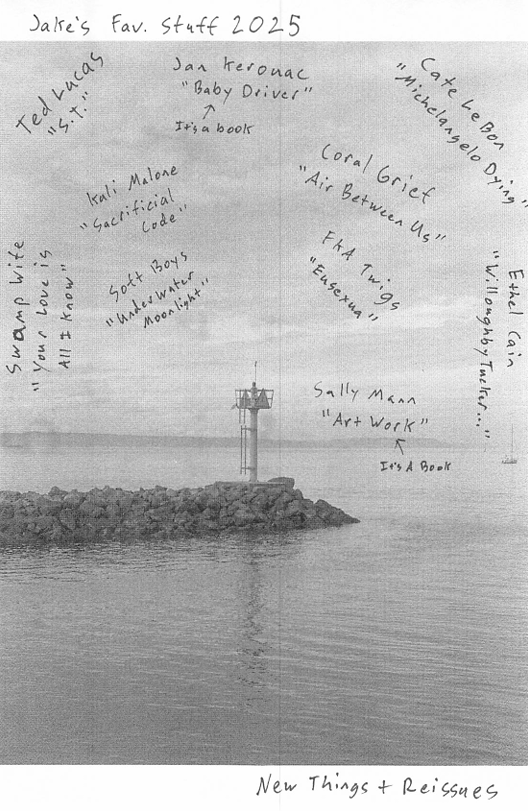 Jake's Fav. Stuff 2025
Ted Lucas
"S.T."
Jan Kerouac
"Baby Driver"
It's a book
Cate Le Bon
"Michelangelo Dying"
Kali Malone
"Sacrificial
Code"
Coral Grief
"Air Between Us"
Swamp Wife
"Your Love is
All I Know"
Soft Boys
"Underwater
Moonlight"
FKA Twigs
"Eusexua"
Ethel Cain
"Willoughby Tucker..."
Sally Mann
"Art Work"
It's A Book
New Things + Reissues